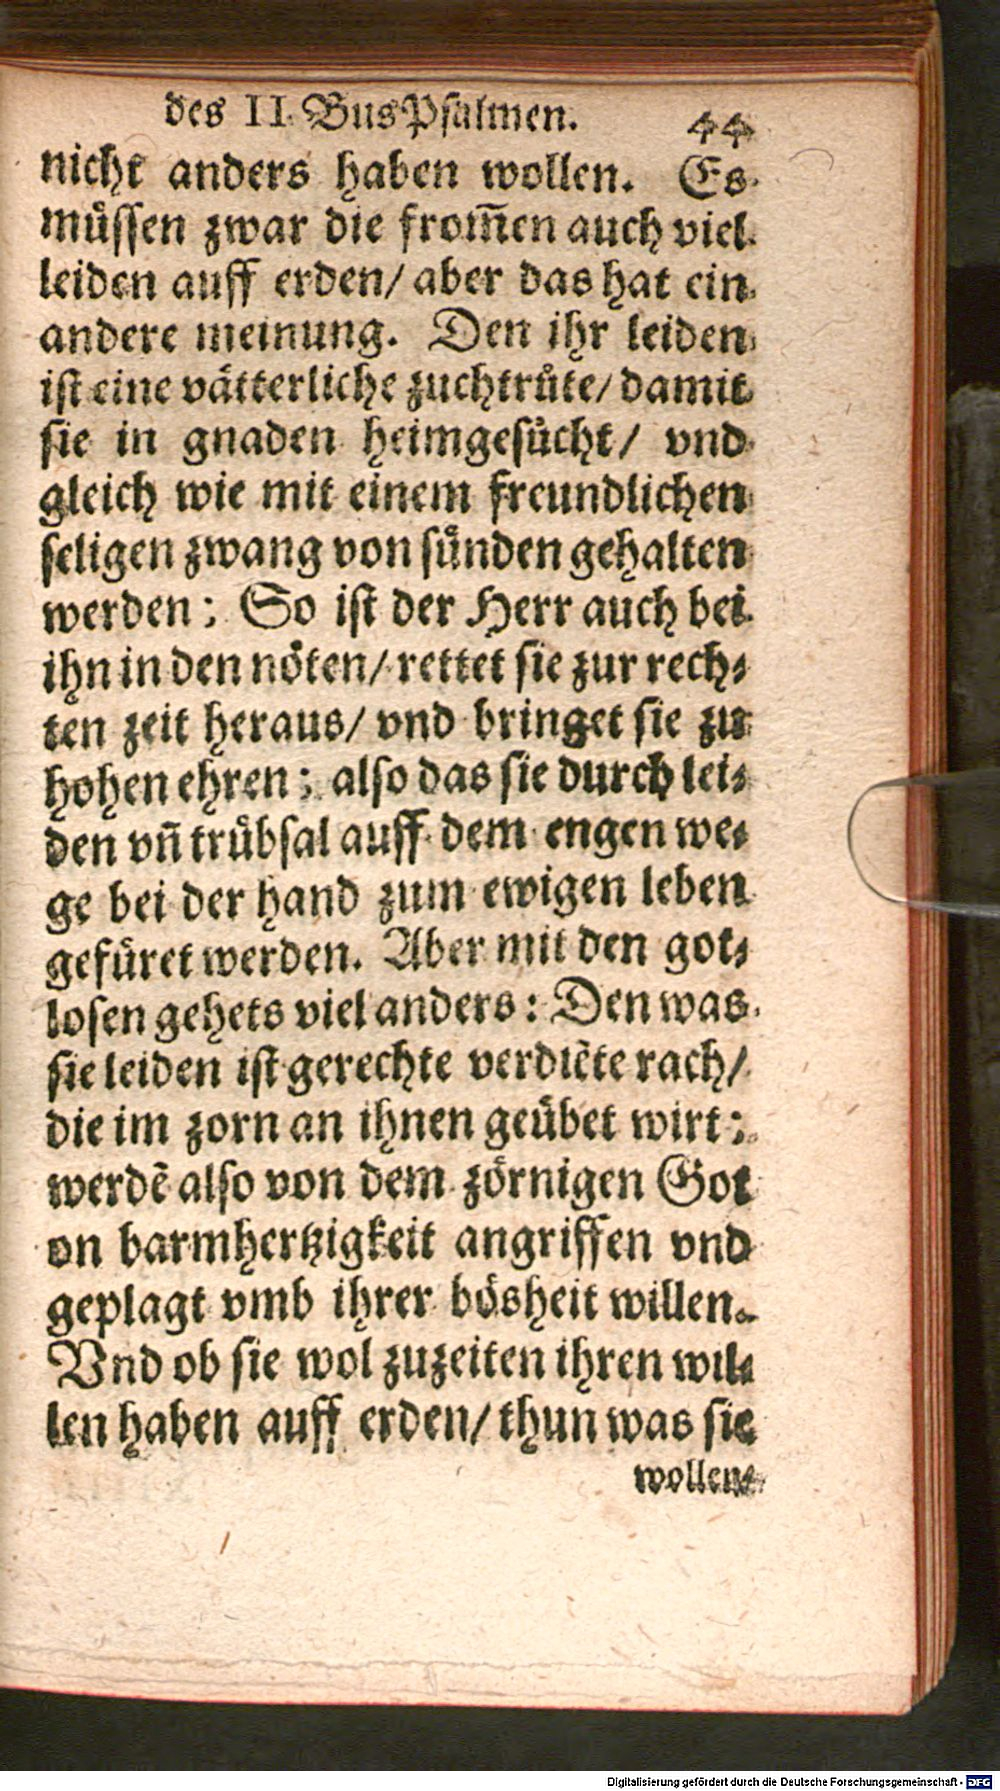 des II. BusPsalmen. 44
nicht anders haben wollen. Es
müssen zwar die from̃en auch viel
leiden auff erden/ aber das hat ein
andere meinung. Den ihr leiden
ist eine vätterliche zuchtrůte/ damit
sie in gnaden heimgesůcht/ vnd
gleich wie mit einem freundlichen
seligen zwang von sünden gehalten
werden: So ist der Herr auch bei
ihn in den nöten/ rettet sie zur rech⸗
ten zeit heraus/ vnd bringet sie zu
hohen ehren: also das sie durch lei⸗
den vñ trübsal auff dem engen we⸗
ge bei der hand zum ewigen leben
gefüret werden. Aber mit den got⸗
losen gehets viel anders: Den was
sie leiden ist gerechte verdiẽte rach/
die im zorn an ihnen geübet wirt:
werdẽ also von dem zörnigen Got
on barmhertzigkeit angriffen vnd
geplagt vmb ihrer bösheit willen.
Vnd ob sie wol zuzeiten ihren wil⸗
len haben auff erden/ thun was sie
wollen
Digitalisierung gefördert durch die Deutsche Forschungsgemeinschaft - DFG